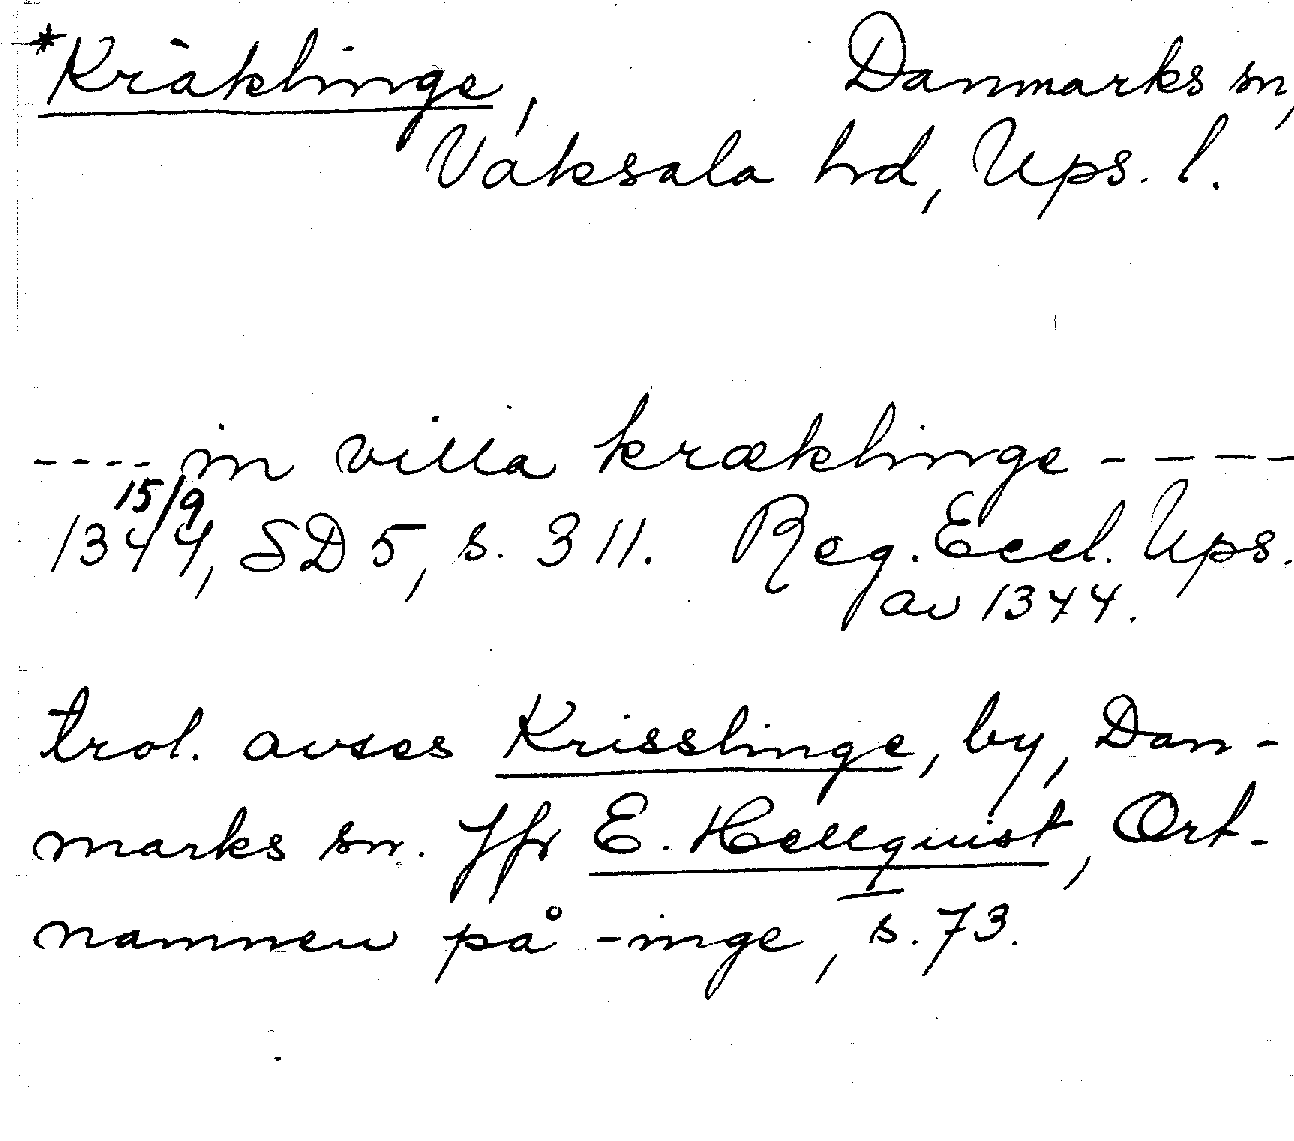 *Kräklinge, Danmarks sn,
Vaksala hrd, Ups. l.
---- in villa kræklinge ----
15/9
1344, SD 5, s. 311. Reg. Eccl. Ups.
av 1344.
trol. avses Krisslinge, by, Dan-
marks sn. Jfr E. Hellquist, Ort-
namnen på -inge, s. 73.